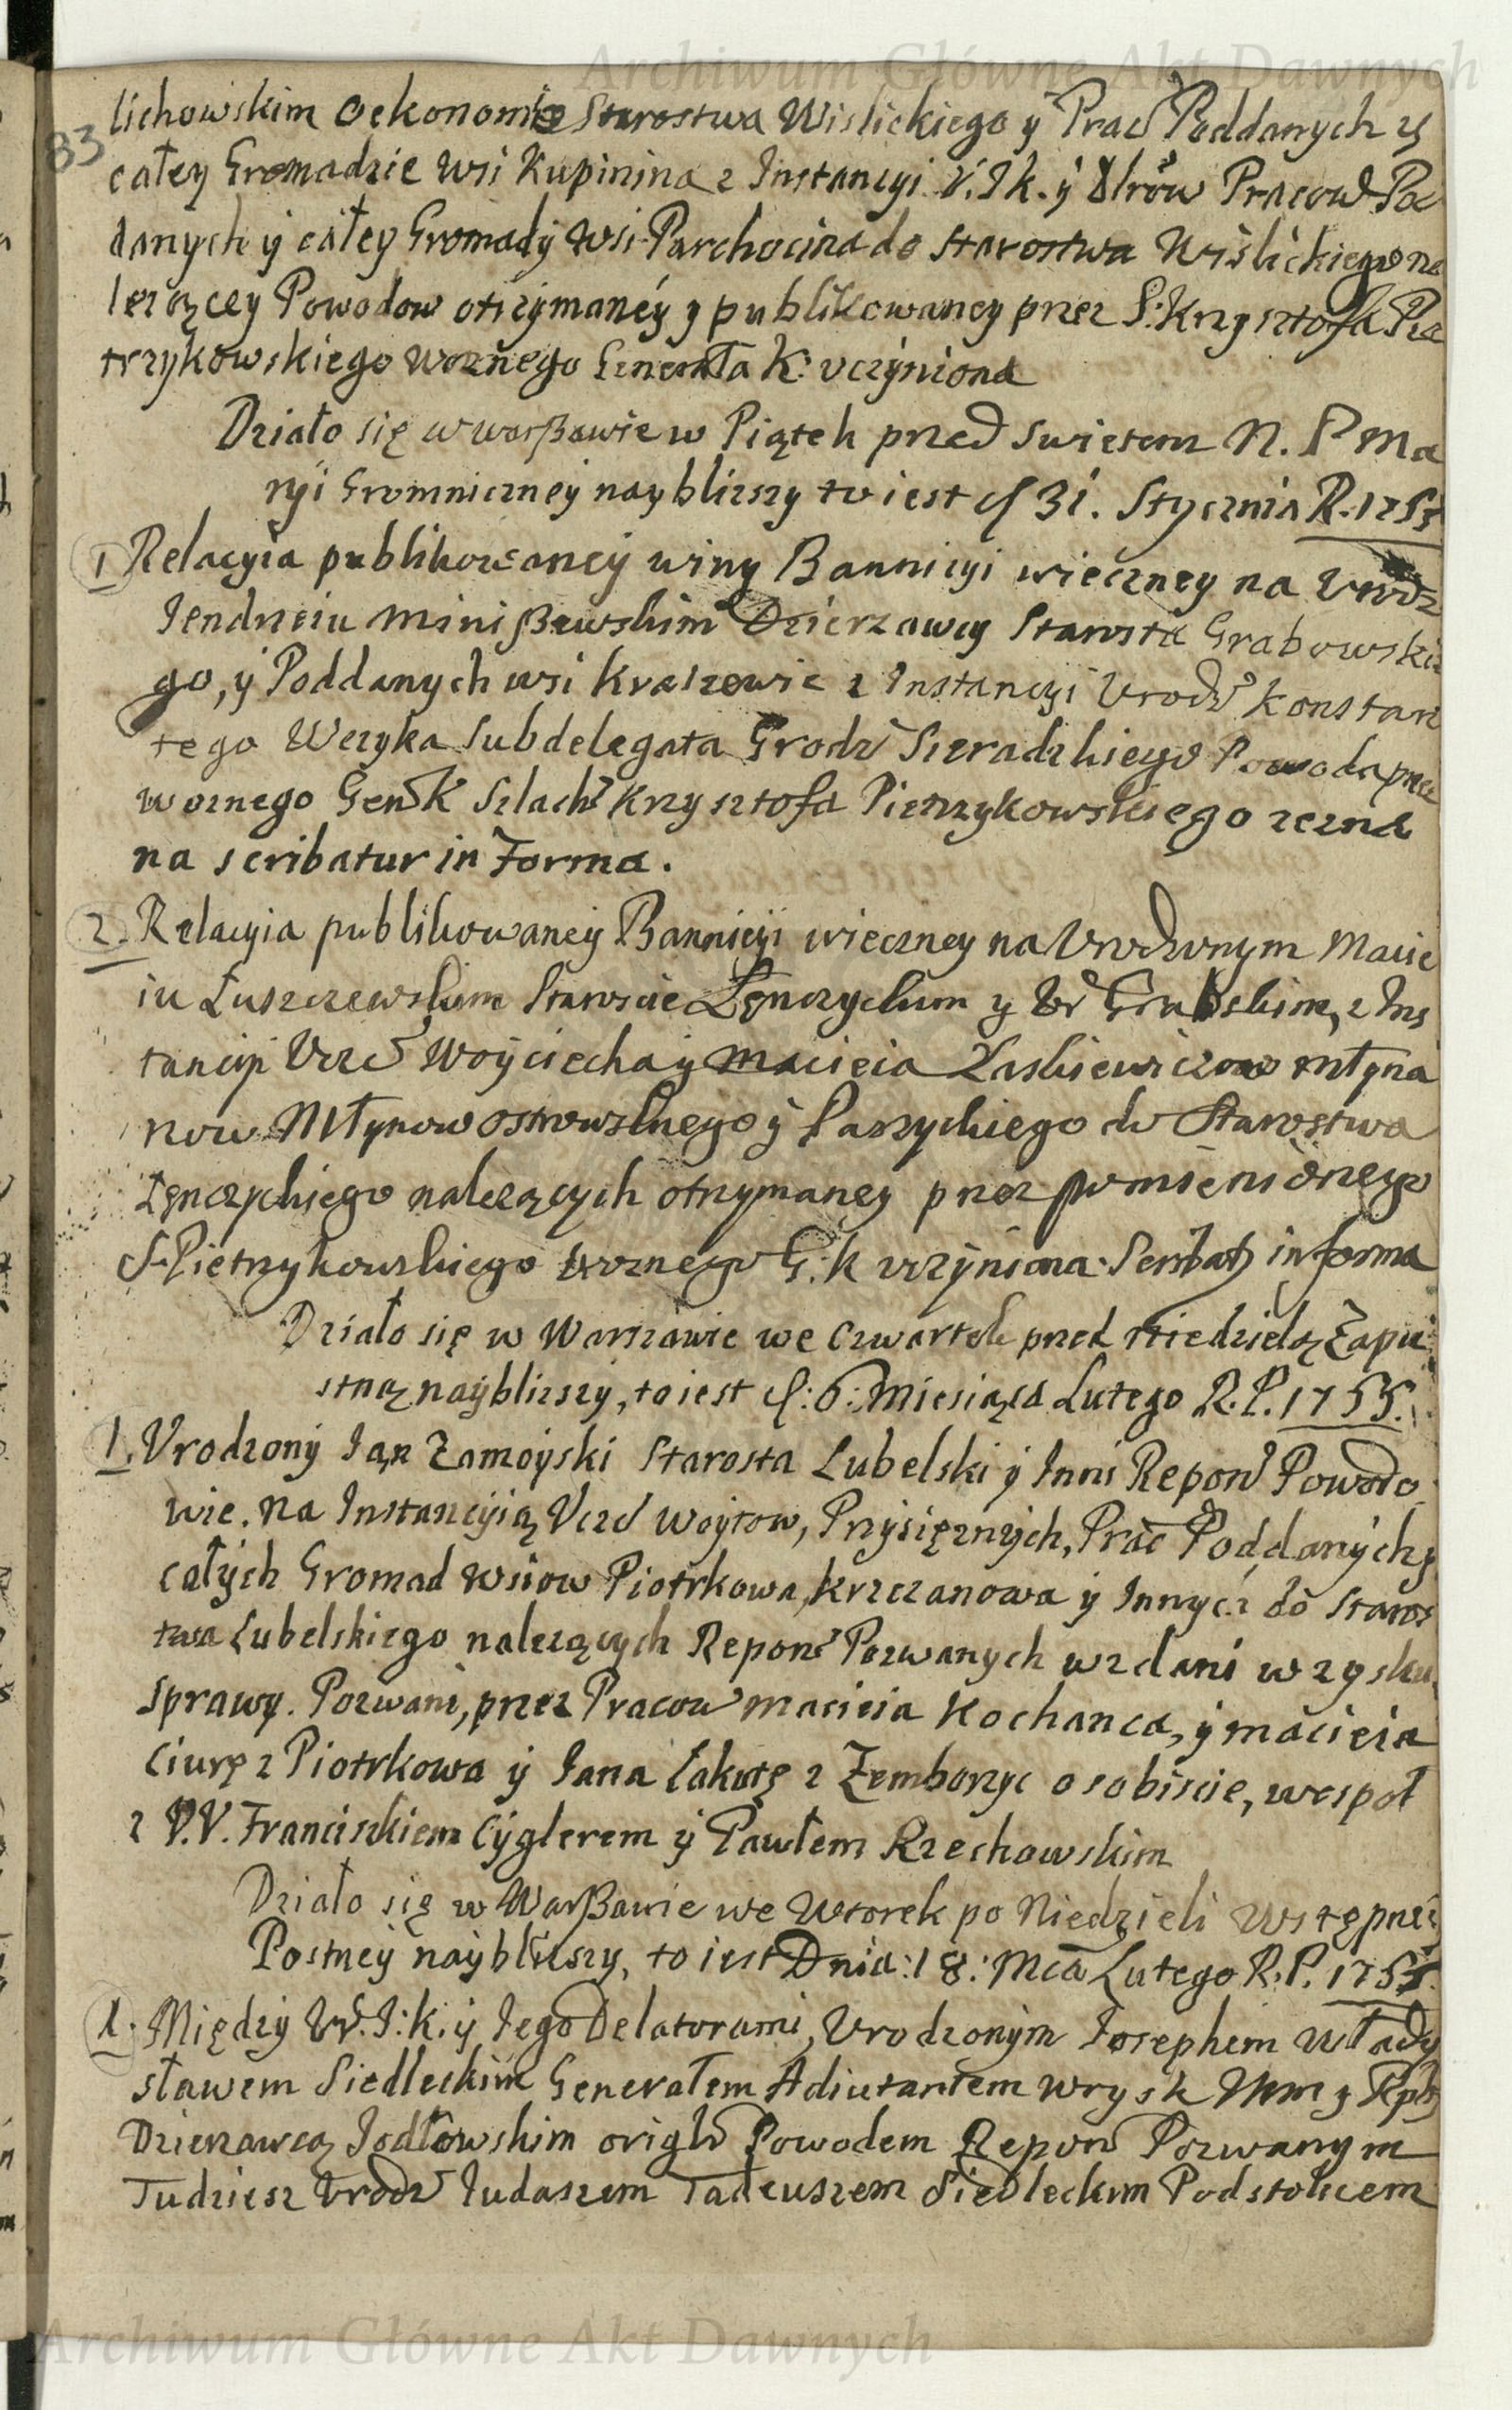 Archiwum Główne Akt Dawnych
83
lichowskim Oekonomie Starostwa Wislickiego ÿ Prac Poddanych y
całey Gromadzie wsi Kupinina z Instancyi V. Ik. ÿ Pracow Po
danych ÿ całey Gromady wsi Parchocina do Starostwa Wislickiego na
lezącey Powodow otrzymaney y publikowaney przez S: Krzysztofa Pie
trzykowskiego Woznego Generała K: vczyniona
Działo się w warßawie w Piątek przed swietem N. P Ma
ryi Gromniczney nayblizszy to iest d 31. Stycznia R. 1755
1 Relacyia publikowaney winy Bannicyi wieczney na Vrodz
Iendrzeiu Minißewskim Dzierzawcy Starostwa Grabowskie
go, ÿ Poddanych wsi Kraszewic z Instancyi Vrodz Konstan
tego Wezyka Subdelegata Grodz Sieradzkiego Powoda przez
woznego Gen K Szlach Krzysztofa Pietrzykowskiego zezna
na scribatur in Forma.
2. Relacyia publikowaney Bannicyi wieczney na Vrodzonym Macie
iu Łuszczewskim Staroscie Łęnczyckim y, z Ins
tancyi Vczc Woyciecha y Macieia Laskiewiczow Młyna
now Młynow ostrowskiego ÿ Parzyckiego do Starostwa
Łęnczyckiego nalezących otrzymaney przez pomienionego
S. Pietrzykowskiego woznego G: K vczyniona. Scribat in forma
Działo się w Warszawie we Czwartek przed Niedzielą Zapu
stną nayblizszy, to iest d: 6: Miesiąca Lutego R. P. 1755.
1. Vrodzony Ian Zamoyski Starosta Lubelski ÿ Inni Repond Powodo
wie. Na Instancyią Vczc Woytow, Przysięznych, Prac Poddanych y
całych Gromad wsiow Piotrkowa, Krzczanowa ÿ Innych do Staros
twa Lubelskiego nalezących Repond Pozwanych wzdani w zysku
sprawy. Pozwani, przez Pracow Macieia Kochanca, ÿ Macieia
Ciurę z Piotrkowa ÿ Iana Łakutę z Zemborzyc osobiscie, wespoł
z V. V. Franciszkiem Cyglerem ÿ Pawłem Rzechowskim
Działo się w Warßawie we Wtorek po Niedzieli Wstępnei
Postney nayblizszy, to iest Dnia: 18: Mca Lutego R. P. 1755.
1. Między W. I: k. ÿ Iego Delatorami, Vrodzonym Iosephem Włady
sławem Siedleckim Generałem Adiutantem Wrysk Ikm y Rptey
Dzierzawcą Iodłowskim origln Powodem Repond Pozwanym
Tudziesz Vrodz Iudaszem Tadeuszem Siedleckim Podstolicem
Archiwum Główne Akt Dawnych